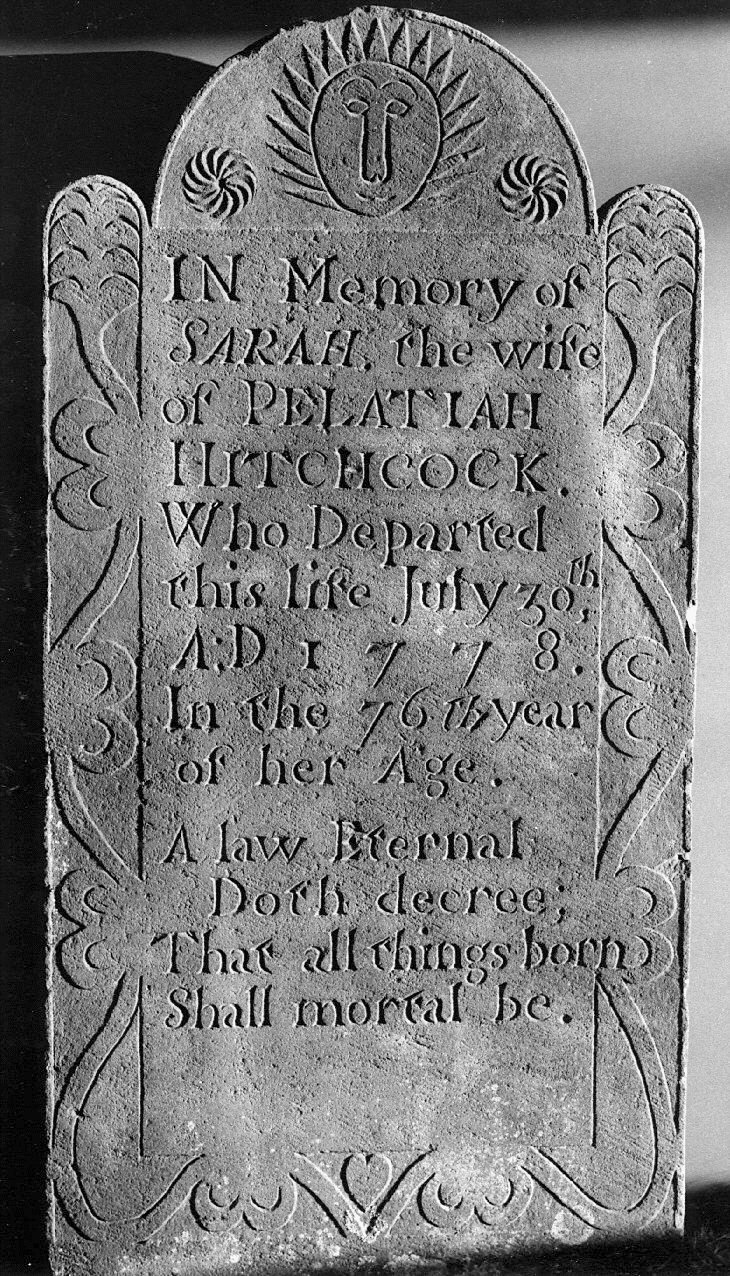 IN Memory of
SARAH, the wife
of PELATIAH
HITCHCOCK.
Who Departed
this life July 30th,
A:D 1778.
In the 76th year
of her Age.
A law Eternal
Doth decree;
That all things born
Shall mortal be.